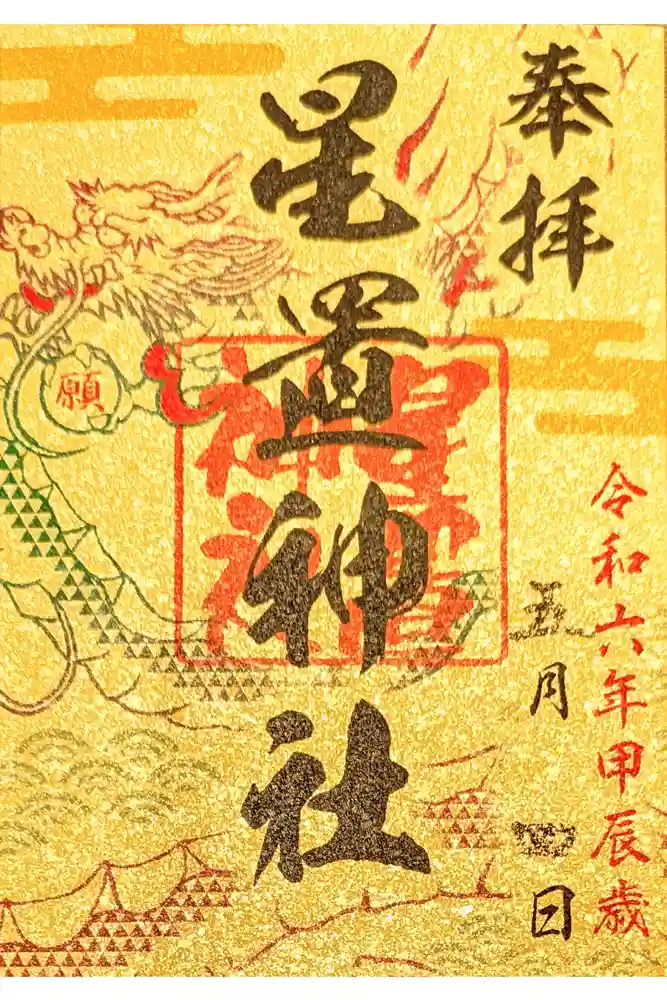 奉拝
令和六年甲辰歳
五月四日
星置神社
星置神社
願